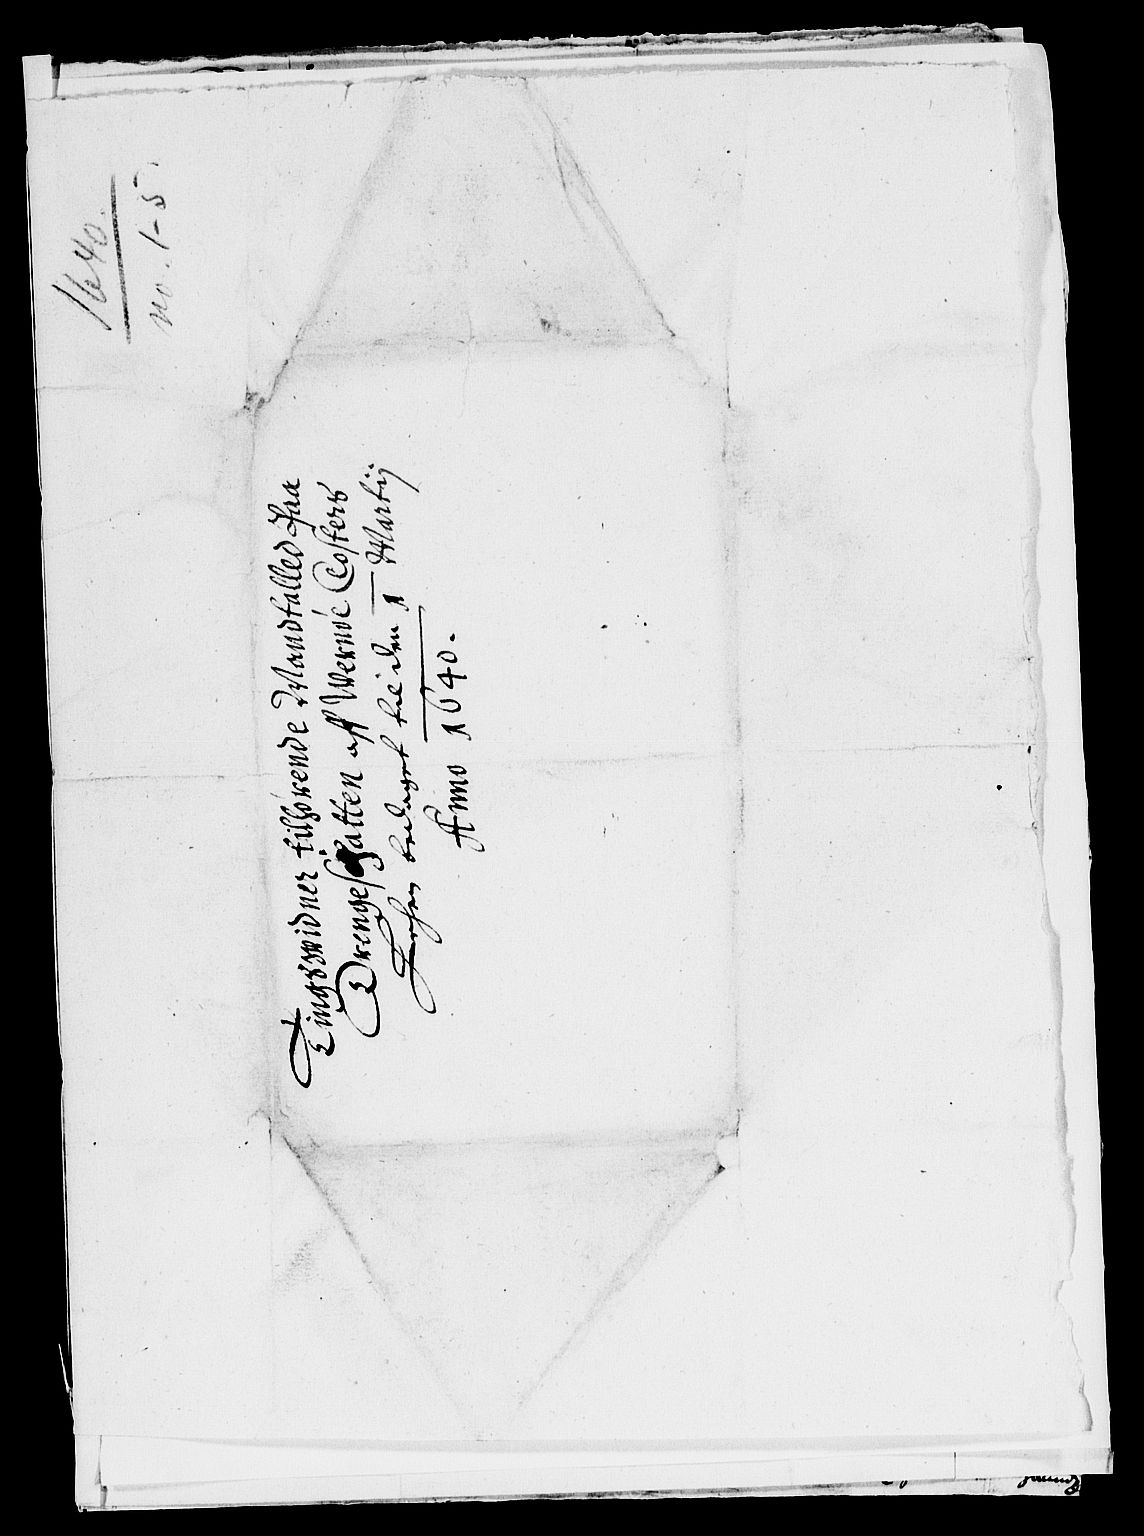 1640.
No. 1-5.
Tingswidner tilhörende Mandtalled Paa
Drengeschatten aff Wernöe Closters
Lehen beduget till den 1 Martij
Anno 1640.